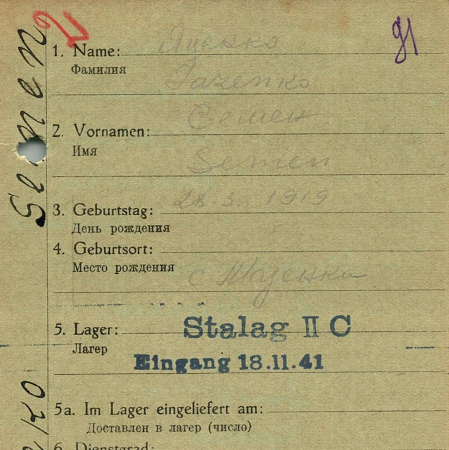 2
91
Semen
ко
1. Name: Яценко
Фамилия
Jačenko
2. Vornamen: Семен
Имя
Semen
28. 3. 1919
3. Geburtstag:
День рождения
4. Geburtsort:
Место рождения
с.
5. Lager: Stalag II C
Лагер
Eingang 18.11.41
5a. Im Lager eingeliefert am:
Доставлен в лагер (число)
6. Dienstgrad: